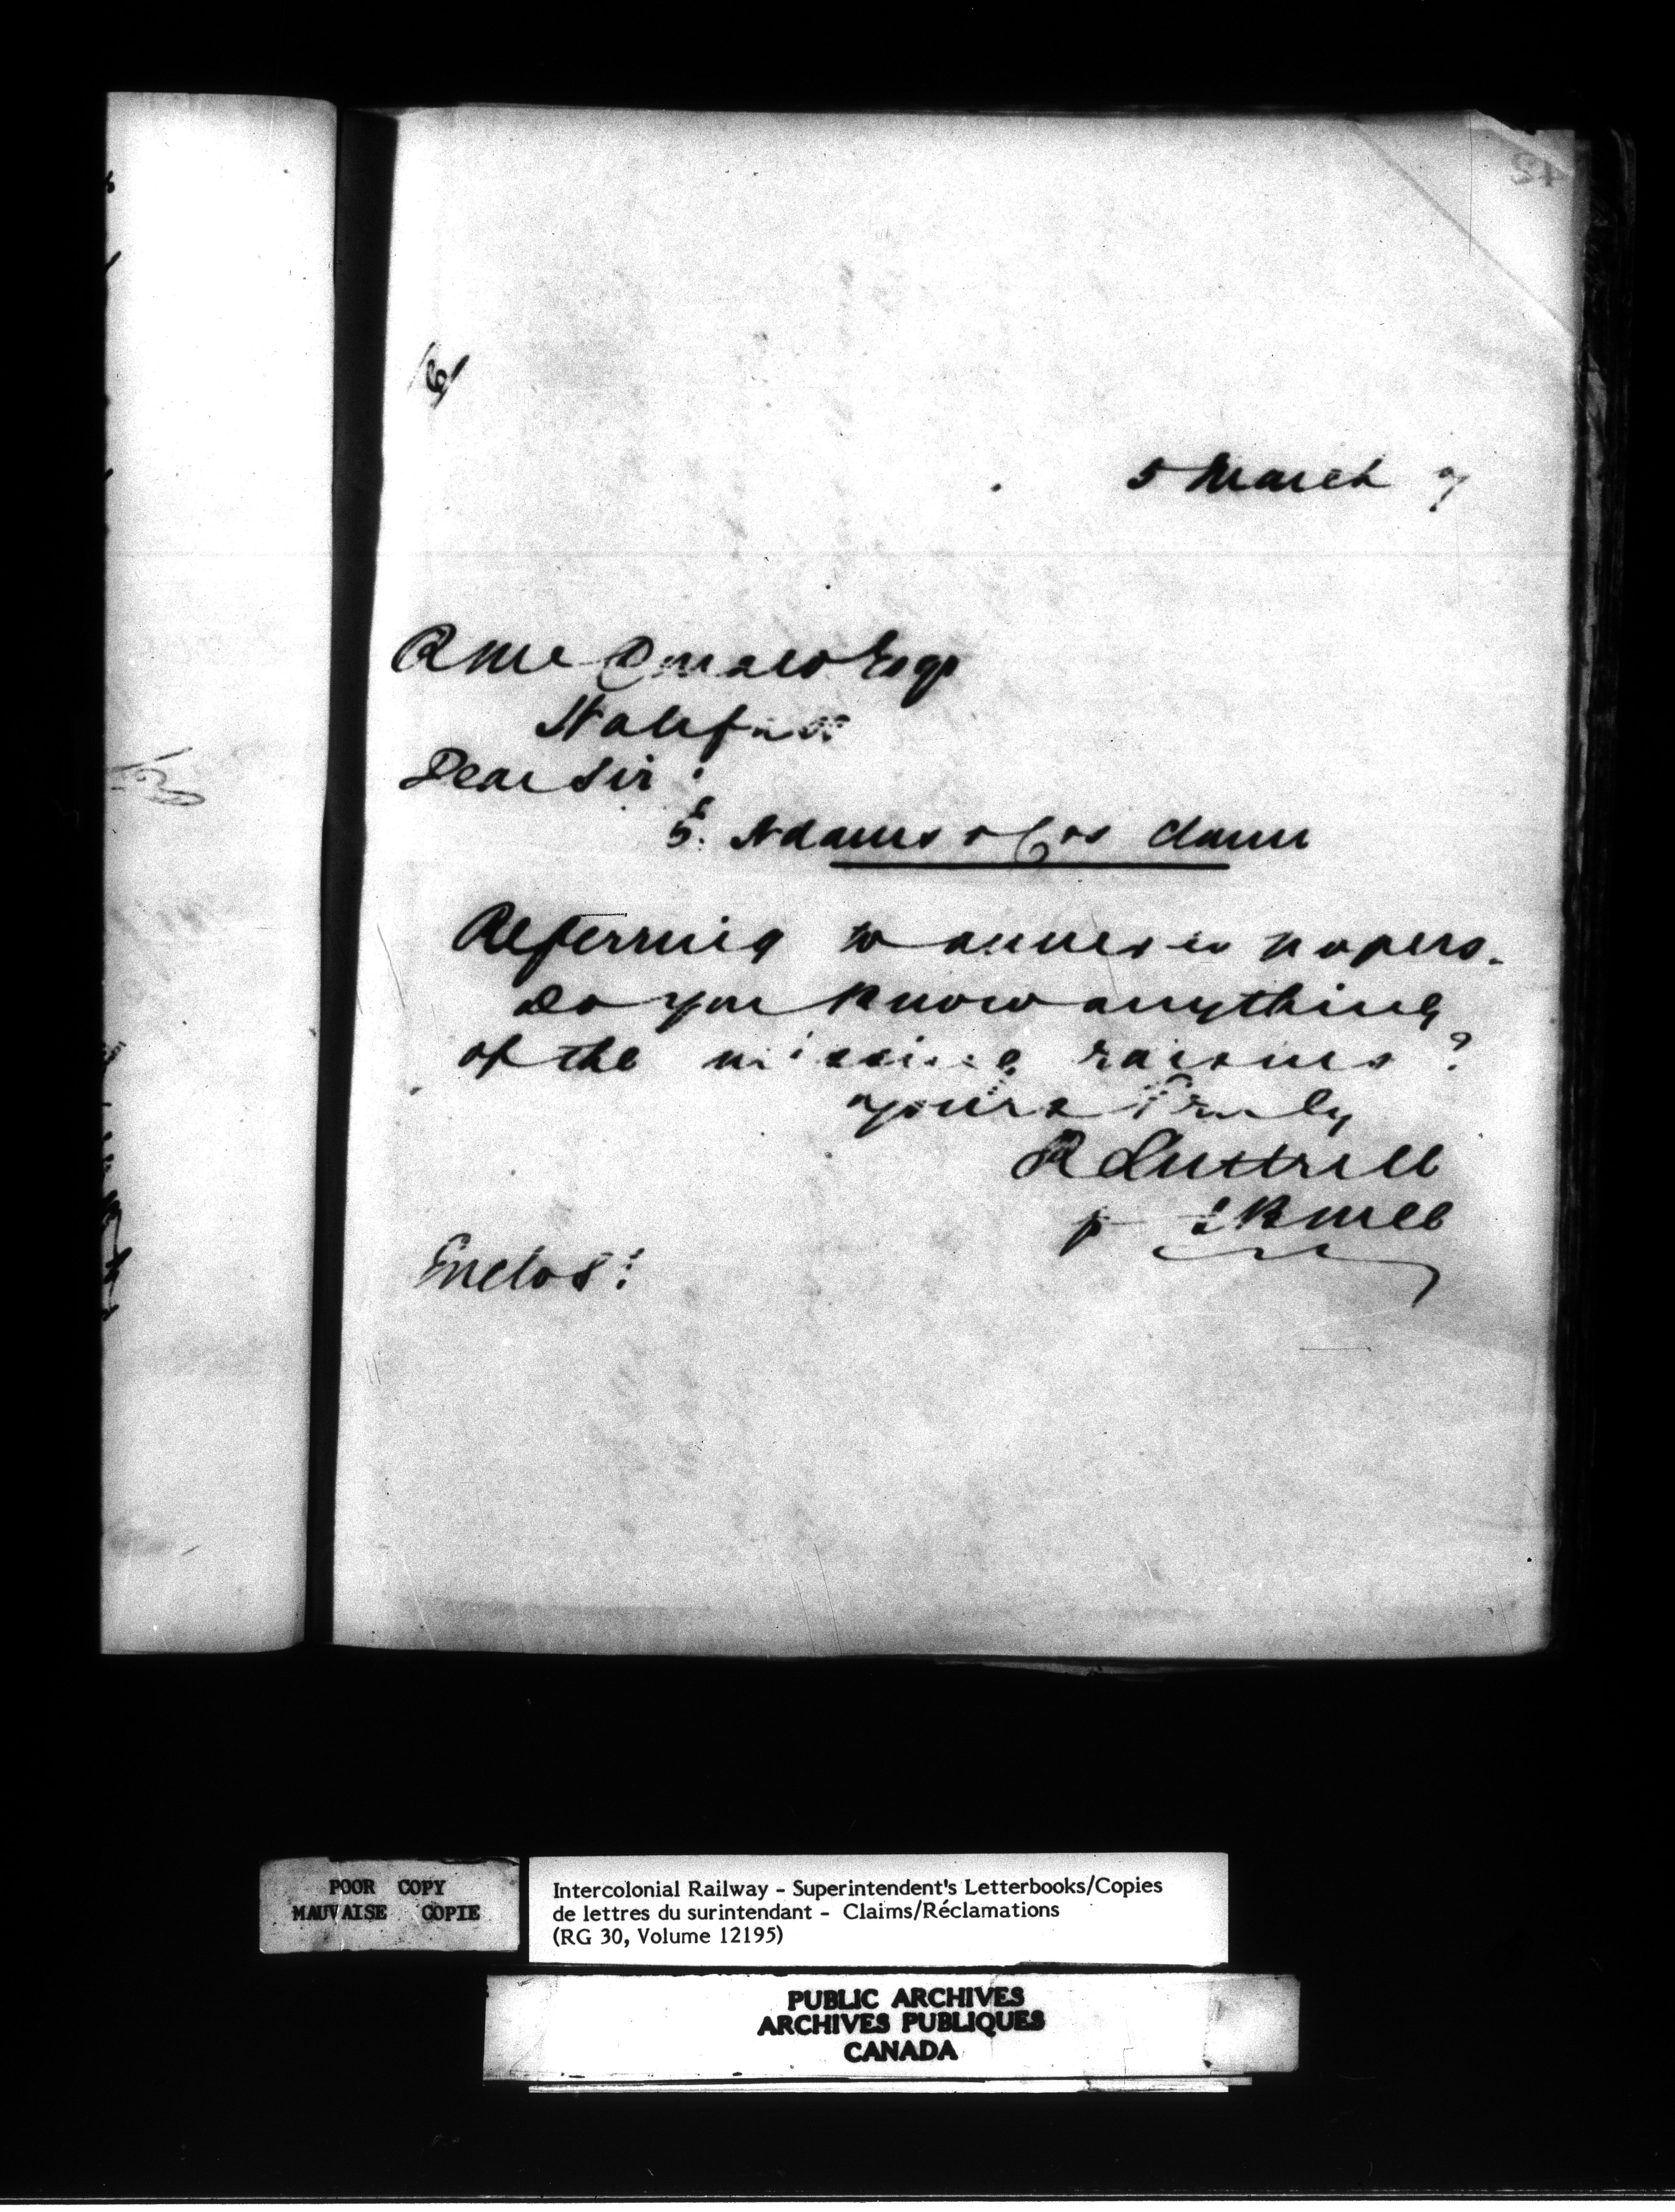 5 March 7
R McDonald Esqr
Halifax
Dear Sir:
Adams & Cos claim
Referring to annexed papers.
Do you know anything
of the missing raisins?
Yours Truly
R Luttrell
p
Enclos:
POOR COPY
MAUVAISE COPIE
Intercolonial Railway - Superintendent's Letterbooks/Copies
de lettres du surintendant - Claims/Réclamations
(RG 30, Volume 12195)
PUBLIC ARCHIVES
ARCHIVES PUBLIQUES
CANADA